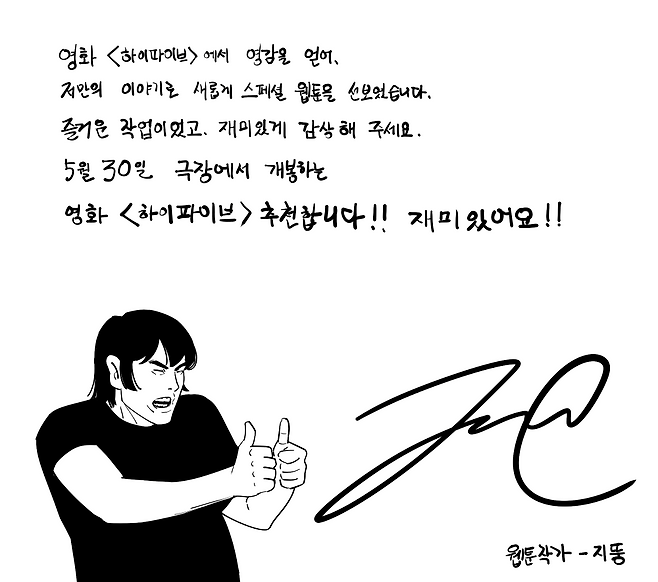 영화 <하이파이브>에서 영감을 얻어,
저만의 이야기로 새롭게 스페셜 웹툰을 선보였습니다.
즐거운 작업이었고, 재미있게 감상해 주세요.
5월 30일 극장에서 개봉하는
영화 <하이파이브> 추천합니다!! 재미있어요!!
웹툰작가 - 지뚱